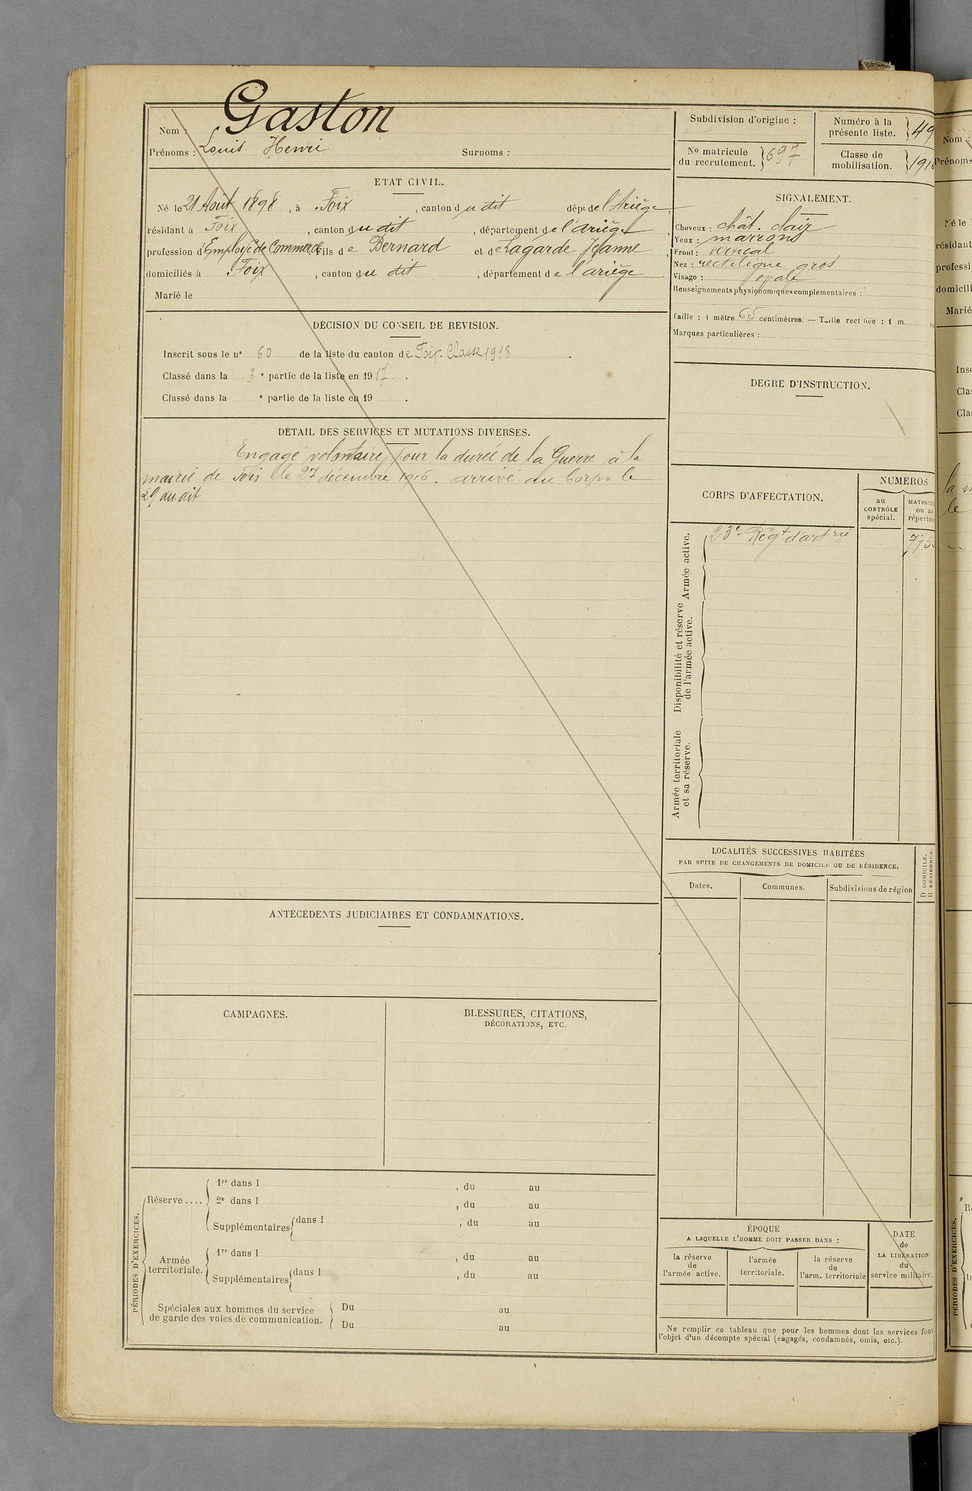 Nom : Gaston
Prénoms : Louis Henri Surnoms :
ETAT CIVIL.
Né le 21 Août 1898, à Foix, canton du dit dépt de l'Ariège,
résidant à Foix, canton du dit, département de l'ariège,
profession d'Employé de Commerce fils de Bernard et de Lagarde Jeanne,
domiciliés à Foix, canton du dit, département de l'ariège
Marié le
DÉCISION DU CONSEIL DE REVISION.
Inscrit sous le n° 60 de la liste du canton de Foix. Classe 1918.
Classé dans la 3e partie de la liste en 1917.
Classé dans la e partie de la liste en 19 .
DÉTAIL DES SERVICES ET MUTATIONS DIVERSES.
Engagé volontaire pour la durée de la Guerre à la
mairie de Foix le 27 décembre 1916. arrivé au Corps le
29 au dit
ANTÉCÉDENTS JUDICIAIRES ET CONDAMNATIONS.
CAMPAGNES.
BLESSURES, CITATIONS,
DÉCORATIONS, ETC.
PÉRIODES D'EXERCICES.
Réserve ....
1re dans l , du au
2e dans l , du au
Supplémentaires dans l , du au
Armée
territoriale.
1re dans l , du au
Supplémentaires dans l , du au
Spéciales aux hommes du service
de garde des voies de communication.
Du au
Du au
Subdivision d'origine :
Numéro à la
présente liste. 49
No matricule
du recrutement. 697
Classe de
mobilisation. 191
SIGNALEMENT.
Cheveux : chât. clair
Yeux : marrons
Front : vertical
Nez : rectiligne gros
Visage : ovale
Renseignements physionomiques complémentaires :
Taille : 1 mètre 65 centimètres. — Taille rectifiée : 1 m.
Marques particulières :
DEGRÉ D'INSTRUCTION.
CORPS D'AFFECTATION.
NUMÉROS
au
CONTRÔLE
spécial.
MATRICU
ou au
réperto
Armée active.
23e Régt d'artrie
Disponibilité et réserve
de l'armée active.
Armée territoriale
et sa réserve.
LOCALITÉS SUCCESSIVES HABITÉES
PAR SUITE DE CHANGEMENTS DE DOMICILE OU DE RÉSIDENCE.
Dates.
Communes.
Subdivisions de région
D DOMICILE.
R RÉSIDENCE.
ÉPOQUE
A LAQUELLE L'HOMME DOIT PASSER DANS :
la réserve
de
l'armée active.
l'armée
territoriale.
la réserve
de
l'arm. territoriale
DATE
de
LA LIBÉRATION
du
service militaire.
Ne remplir ce tableau que pour les hommes dont les services font
l'objet d'un décompte spécial (engagés, condamnés, omis, etc.).
Nom :
Prénoms
Né le
résidant
professi
domicili
Marié
Insc
Cla
Cla
la m
le
PÉRIODES D'EXERCICES.